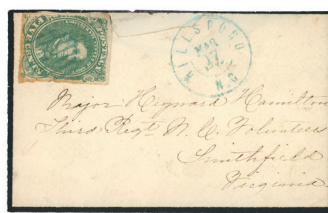 FIVE CENTS
POSTAGE
HILLSBORO
MAR
17
N.C.
Major Heyward Hamilton
Third Regt N. C. Volunteers
Smithfield
Virginia